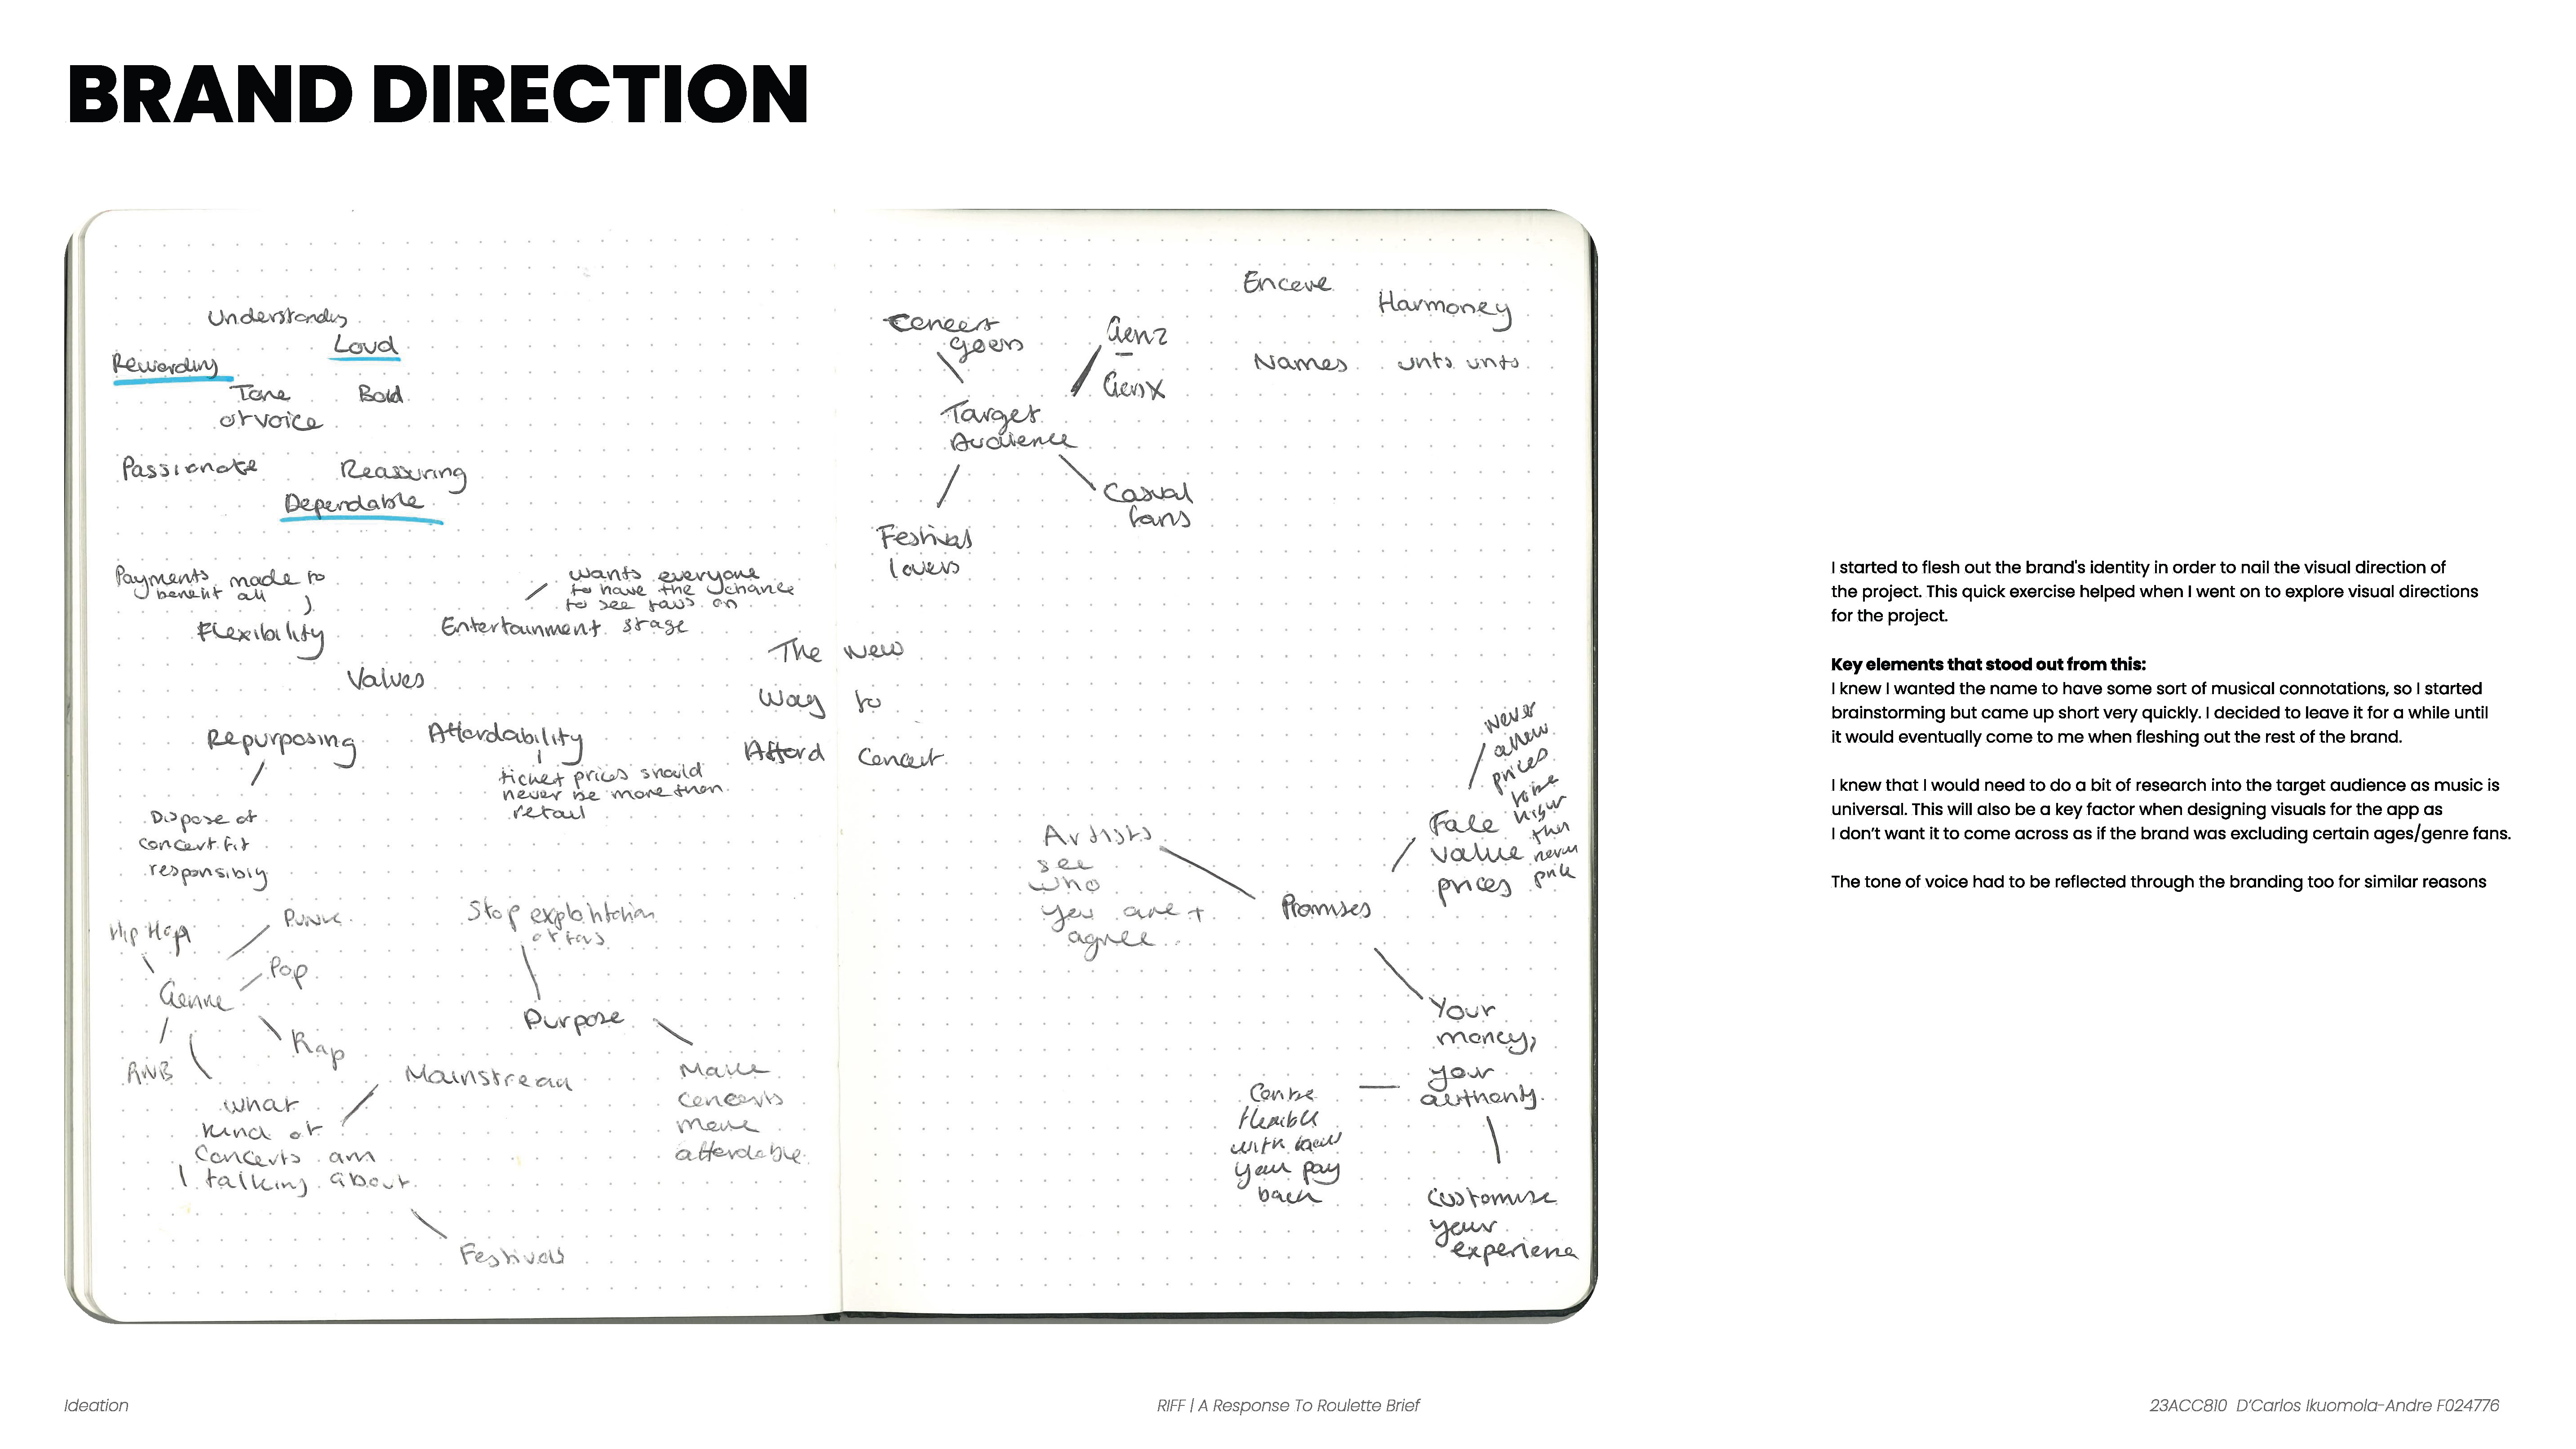 BRAND DIRECTION
Understanding
Loud
Rewarding
Tone
of voice
Bold
Passionate
Reassuring
Dependable
Payments made to
benefit all
Flexibility
wants everyone
to have the chance
to see favs on
Entertainment stage
Values
Repurposing
Affordability
ticket prices should
never be more than
retail
Dispose of
concert fit
responsibly
The new
Way to
Afford Concert
Hip Hop
Punk
Pop
Genre
Rap
RNB
what
kind of
concerts am
I talking about
Mainstream
Festivals
Stop exploitation
of fans
Purpose
Make
concerts
more
affordable
Concert
goers
Gen Z
–
Gen X
Target
Audience
Casual
fans
Festival
lovers
Enceve
Harmoney
Names
unts unts
Artists
see
who
you are +
agree
Promises
Face
value
prices
never
allow
prices
to be
higher
than
price
Your
money,
your
authority
Can be
flexible
with how
you pay
back
customise
your
experience
I started to flesh out the brand's identity in order to nail the visual direction of
the project. This quick exercise helped when I went on to explore visual directions
for the project.
Key elements that stood out from this:
I knew I wanted the name to have some sort of musical connotations, so I started
brainstorming but came up short very quickly. I decided to leave it for a while until
it would eventually come to me when fleshing out the rest of the brand.
I knew that I would need to do a bit of research into the target audience as music is
universal. This will also be a key factor when designing visuals for the app as
I don't want it to come across as if the brand was excluding certain ages/genre fans.
The tone of voice had to be reflected through the branding too for similar reasons
Ideation
RIFF | A Response To Roulette Brief
23ACC810 D'Carlos Ikuomola-Andre F024776